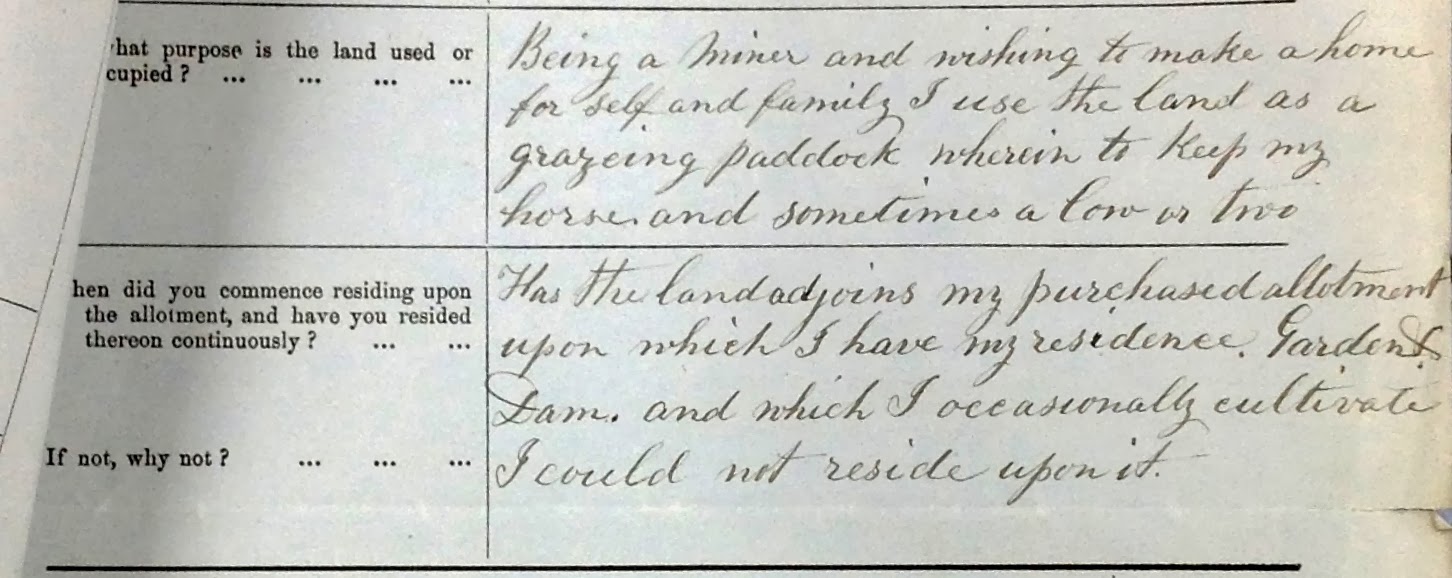 hat purpose is the land used or
cupied ? ... ... ... ...
Being a Miner and wishing to make a home
for self and family I use the land as a
grazeing paddock wherein to Keep my
horse. and sometimes a Cow or two
hen did you commence residing upon
the allotment, and have you resided
thereon continuously ? ... ...
Has the land adjoins my purchased allotment
upon which I have my residence. Garden &
Dam. and which I occasionally cultivate
If not, why not ? ... ... ...
I could not reside upon it.